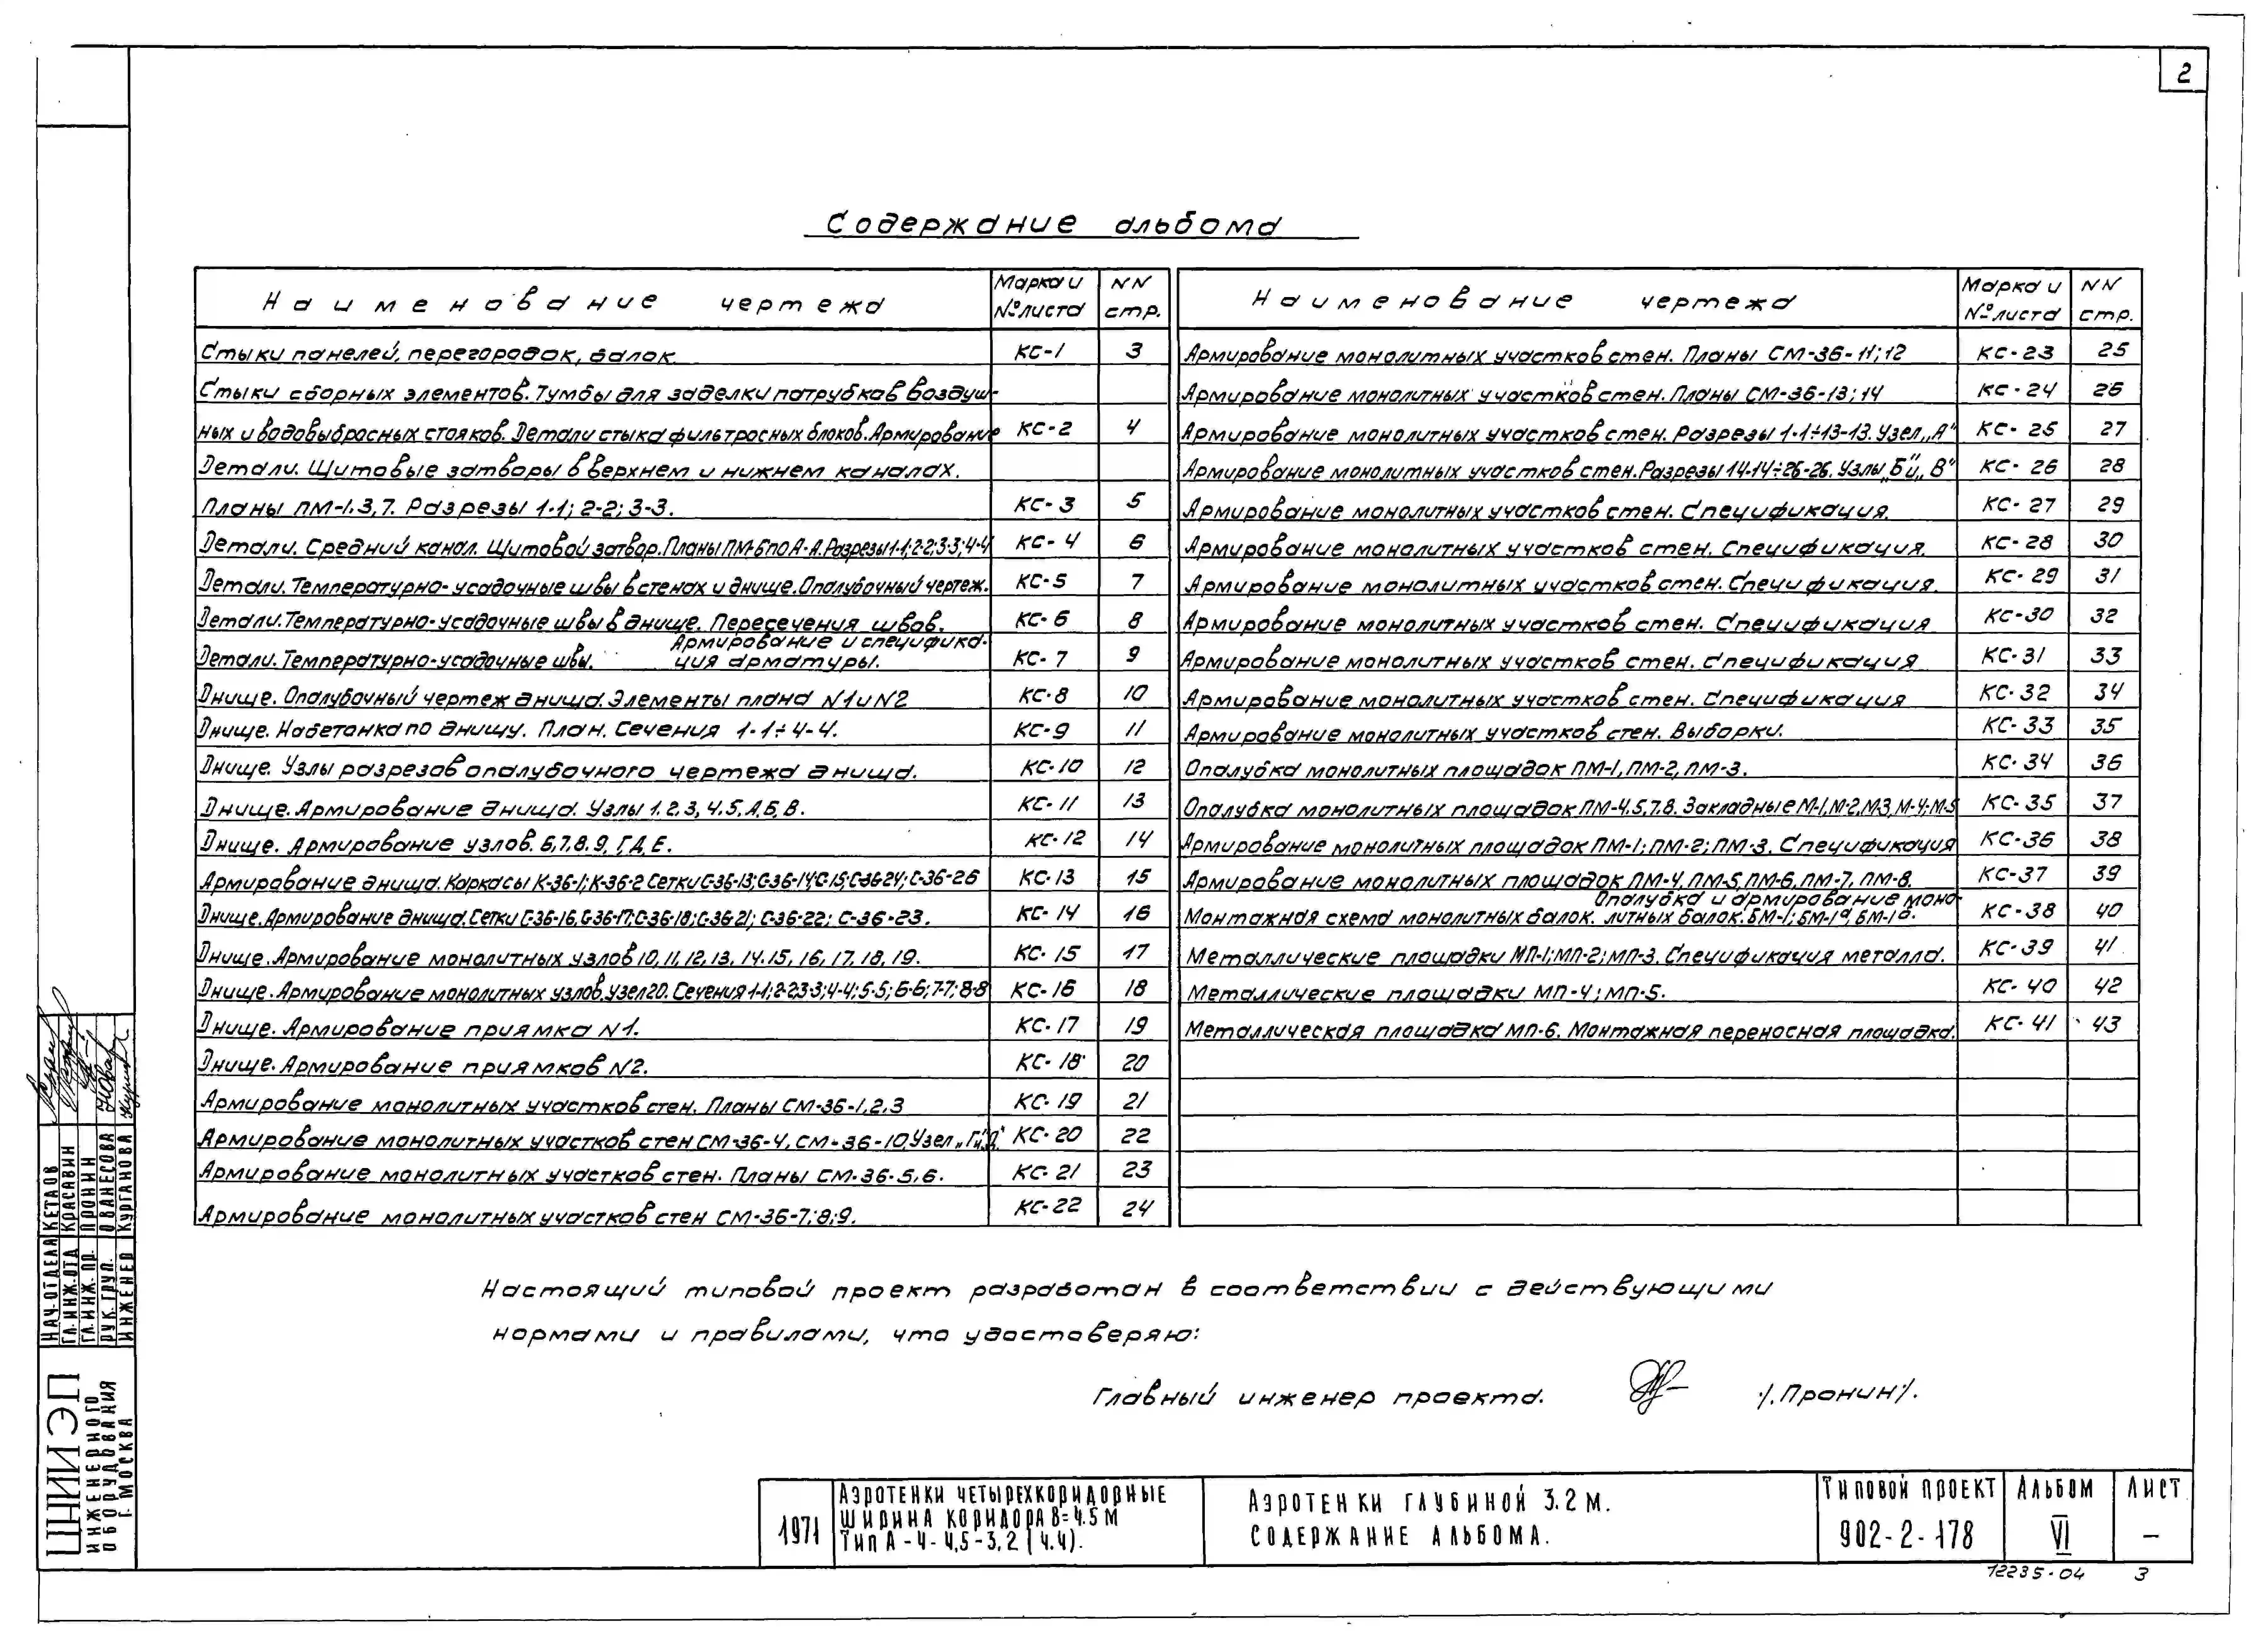 2
Содержание альбома
Наименование чертежа
Марка и № листа
NN стр.
Стыки панелей, перегородок, балок. КС-1 3
Стыки сборных элементов. Тумбы для заделки патрубков воздуш-
ных и водовыбросных стояков. Детали стыка фильтросных блоков. Армирование КС-2 4
Детали. Щитовые затворы в верхнем и нижнем каналах.
Планы ПМ-1,3,7. Разрезы 1-1; 2-2; 3-3. КС-3 5
Детали. Средний канал. Щитовой затвор. Планы ПМ-6 по А-А. Разрезы 1-1; 2-2; 3-3; 4-4 КС-4 6
Детали. Температурно-усадочные швы в стенах и днище. Опалубочный чертеж. КС-5 7
Детали. Температурно-усадочные швы в днище. Пересечения швов. КС-6 8
Детали. Температурно-усадочные швы. Армирование и специфика-
ция арматуры. КС-7 9
Днище. Опалубочный чертеж днища. Элементы плана N1 и N2 КС-8 10
Днище. Набетонка по днищу. План. Сечения 1-1÷4-4. КС-9 11
Днище. Узлы разрезов опалубочного чертежа днища. КС-10 12
Днище. Армирование днища. Узлы 1,2,3,4,5,А,Б,В. КС-11 13
Днище. Армирование узлов. 6,7,8,9,Г,Д,Е. КС-12 14
Армирование днища. Каркасы К-36-1; К-36-2 Сетки С-36-13; С-36-14; С-15; С-36-24; С-36-26 КС-13 15
Днище. Армирование днища. Сетки С-36-16, С-36-17; С-36-18; С-36-21; С-36-22; С-36-23. КС-14 16
Днище. Армирование монолитных узлов 10, 11, 12, 13, 14, 15, 16, 17, 18, 19. КС-15 17
Днище. Армирование монолитных узлов. Узел 20. Сечения 1-1; 2-2; 3-3; 4-4; 5-5; 6-6; 7-7; 8-8 КС-16 18
Днище. Армирование приямка N1. КС-17 19
Днище. Армирование приямков N2. КС-18 20
Армирование монолитных участков стен. Планы СМ-36-1,2,3 КС-19 21
Армирование монолитных участков стен СМ-36-4, СМ-36-10. Узел „Г"и„Д" КС-20 22
Армирование монолитных участков стен. Планы СМ-36-5,6. КС-21 23
Армирование монолитных участков стен СМ-36-7;8;9. КС-22 24
Наименование чертежа
Марка и № листа
NN стр.
Армирование монолитных участков стен. Планы СМ-36-11;12 КС-23 25
Армирование монолитных участков стен. Планы СМ-36-13;14 КС-24 26
Армирование монолитных участков стен. Разрезы 1-1÷13-13. Узел „А" КС-25 27
Армирование монолитных участков стен. Разрезы 14-14÷26-26. Узлы „Б"и „В" КС-26 28
Армирование монолитных участков стен. Спецификация. КС-27 29
Армирование монолитных участков стен. Спецификация. КС-28 30
Армирование монолитных участков стен. Спецификация. КС-29 31
Армирование монолитных участков стен. Спецификация КС-30 32
Армирование монолитных участков стен. Спецификация КС-31 33
Армирование монолитных участков стен. Спецификация КС-32 34
Армирование монолитных участков стен. Выборки. КС-33 35
Опалубка монолитных площадок ПМ-1, ПМ-2, ПМ-3. КС-34 36
Опалубка монолитных площадок ПМ-4,5,7,8. Закладные М-1, М-2, М-3, М-4; М-5 КС-35 37
Армирование монолитных площадок ПМ-1; ПМ-2; ПМ-3. Спецификация КС-36 38
Армирование монолитных площадок ПМ-4, ПМ-5, ПМ-6, ПМ-7, ПМ-8. КС-37 39
Монтажная схема монолитных балок. Опалубка и армирование моно-
литных балок. БМ-1; БМ-1а, БМ-1б. КС-38 40
Металлические площадки МП-1; МП-2; МП-3. Спецификация металла. КС-39 41
Металлические площадки МП-4; МП-5. КС-40 42
Металлическая площадка МП-6. Монтажная переносная площадка. КС-41 43
Настоящий типовой проект разработан в соответствии с действующими
нормами и правилами, что удостоверяю:
Главный инженер проекта. /.Пронин/.
НАЧ.ОТДЕЛА КЕТАОВ
ГЛ.ИНЖ.ОТД КРАСАВИН
ГЛ.ИНЖ.ПР. ПРОНИН
РУК.ГРУП. ОВАНЕСОВА
ИНЖЕНЕР КУРГАНОВА
ЦНИИЭП
ИНЖЕНЕРНОГО
ОБОРУДОВАНИЯ
Г. МОСКВА
1971
АЭРОТЕНКИ ЧЕТЫРЕХКОРИДОРНЫЕ
ШИРИНА КОРИДОРА В=4.5М
ТИП А-4-4,5-3,2 (4.4).
АЭРОТЕНКИ ГЛУБИНОЙ 3.2 М.
СОДЕРЖАНИЕ АЛЬБОМА.
ТИПОВОЙ ПРОЕКТ
902-2-178
АЛЬБОМ
VI
ЛИСТ
—
12235-04 3